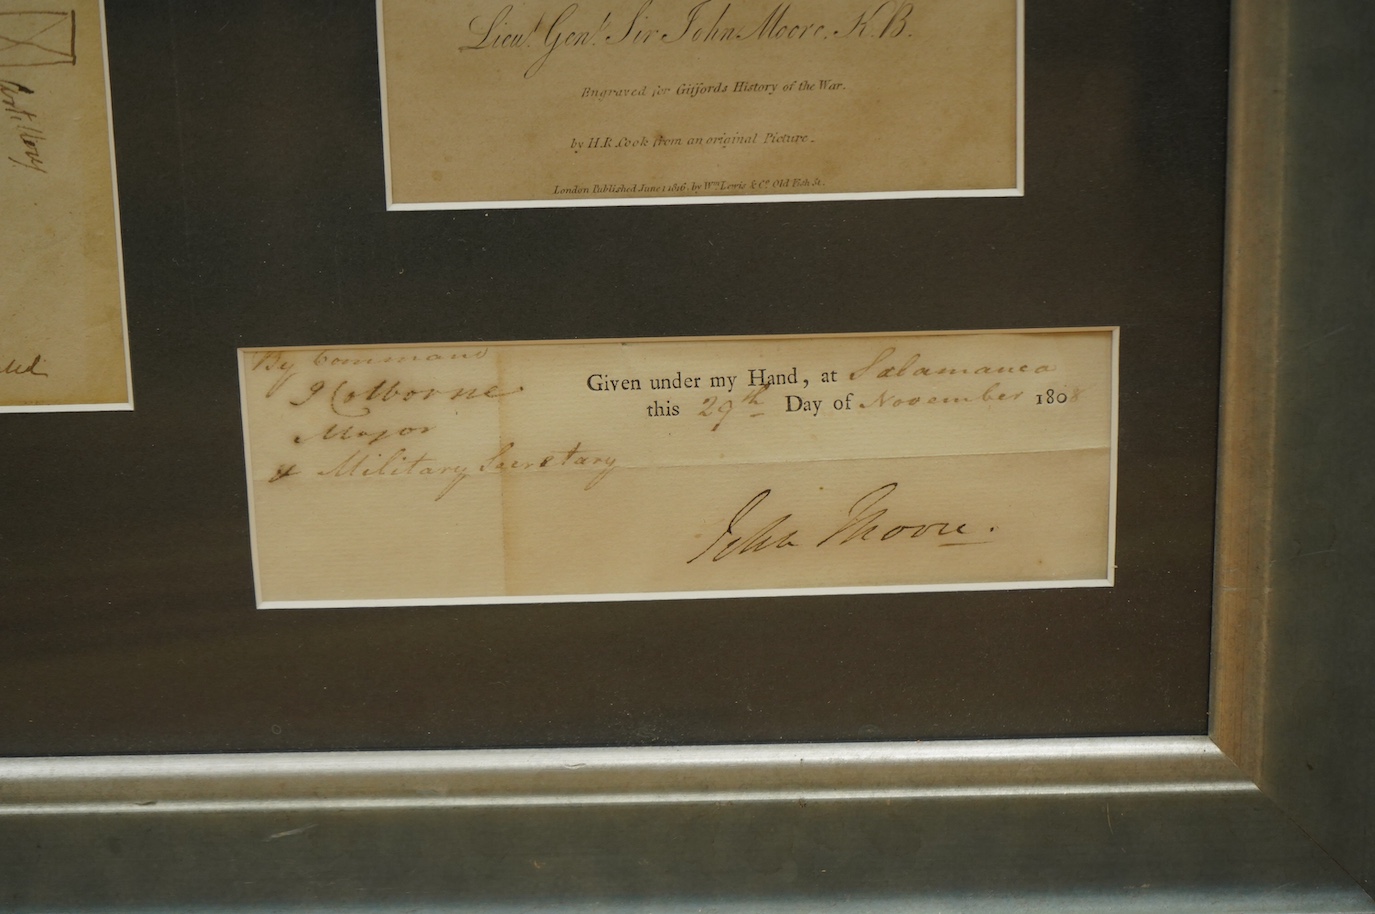 Artillery
Lieut. Genl. Sir John Moore. K.B.
Engraved for Giffords History of the War.
by H.R. Cook from an original Picture.
London Published June 1 1816, by Wm. Lewis & Co. Old Fish St.
By Command
J Colborne.
Major
& Military Secretary
Given under my Hand, at Salamanca
this 29th Day of November 1808
John Moore.